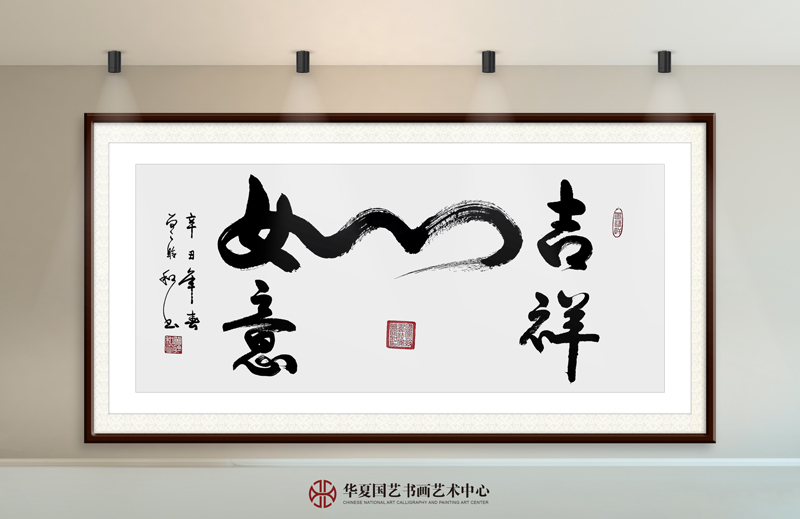 吉祥
如意
辛丑年春
华夏国艺书画艺术中心
CHINESE NATIONAL ART CALLIGRAPHY AND PAINTING ART CENTER